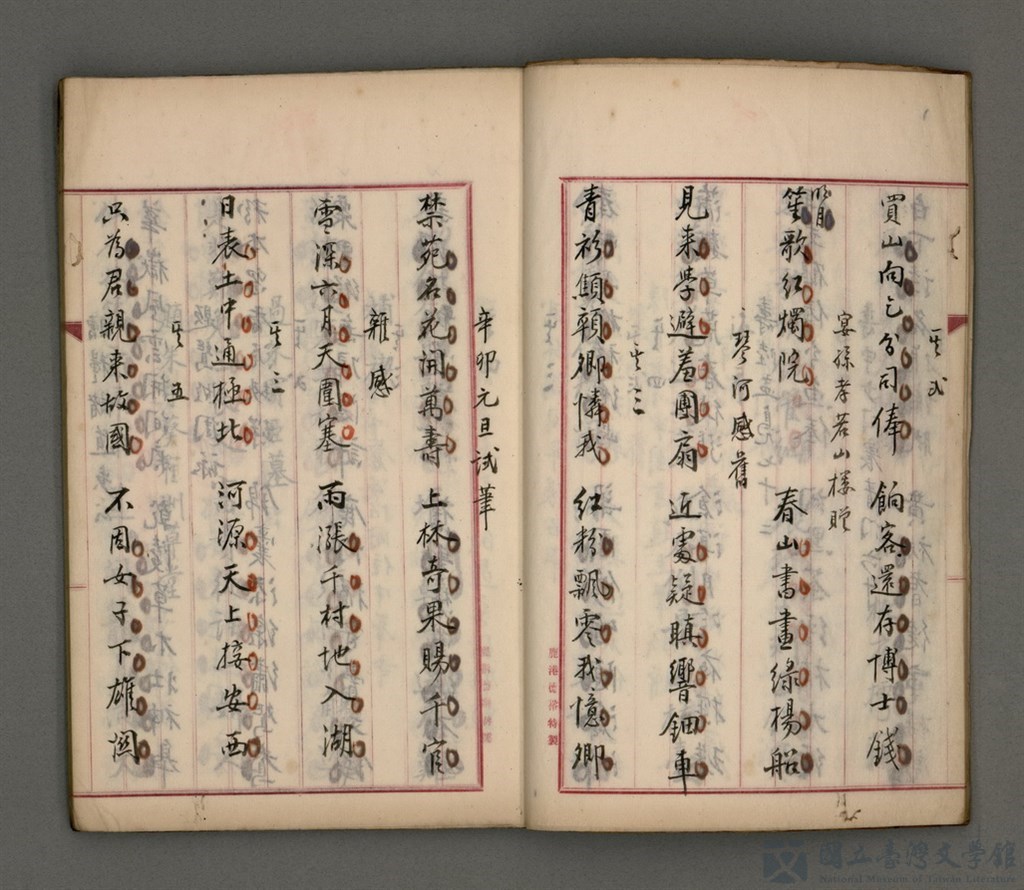 其弍
買山向乞分司俸 餉客還存博士錢
宴孫孝若山樓贈
明月笙歌紅燭院 春山書畫綠楊船
琴河感舊
見来學避羞團扇 近處疑瞋響鈿車
其三
青衫顦顇卿憐我 紅粉飄零我憶卿
鹿港 特製
辛卯元旦試筆
禁苑名花開萬壽 上林奇果賜千官
雜感
雪深六月天圍塞 雨漲千村地入湖
其三
日表土中通極北 河源天上接安西
其五
只為君親来故國 不因女子下雄関
國立臺灣文學館
National Museum of Taiwan Literature